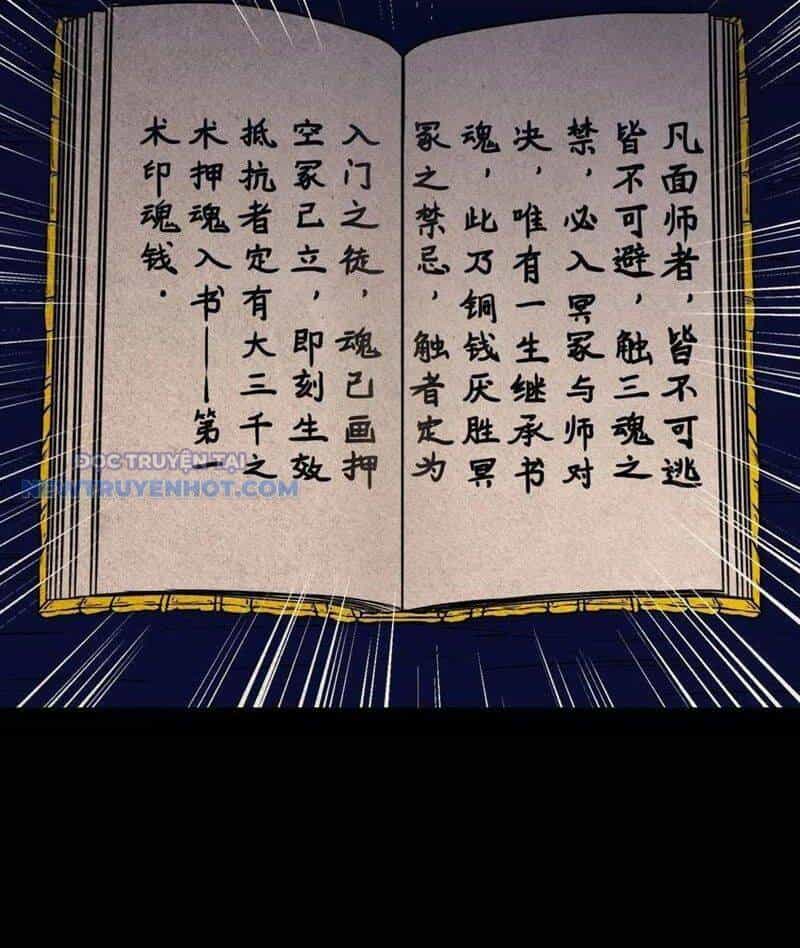 凡面师者，皆不可逃
皆不可避，触三魂之
禁，必入冥冢与师对
决，唯有一生继承书
魂，此乃铜钱厌胜冥
冢之禁忌，触者定为
入门之徒，魂己画押
空冢己立，即刻生效
抵抗者定有大三千之
术押魂入书——第一
术印魂钱．
ĐỌC TRUYỆN TẠI
NEWTRUYENHOT.COM